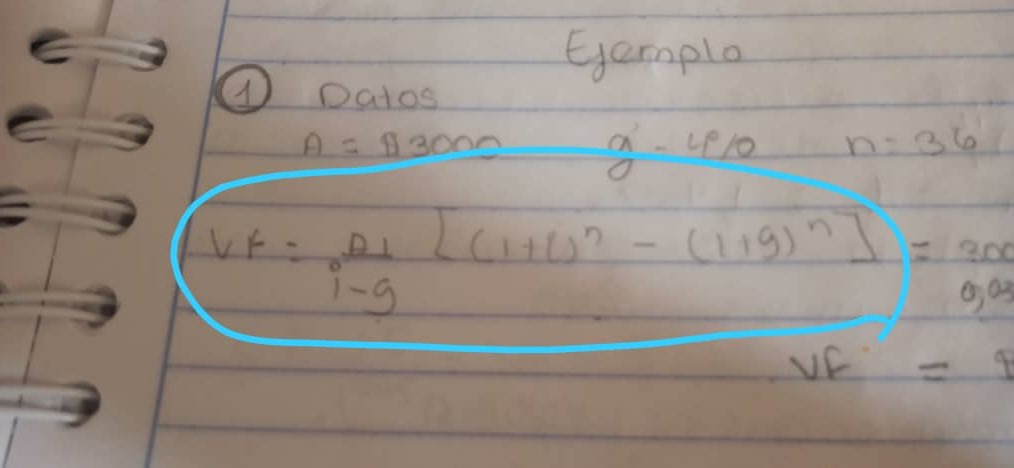 Ejemplo
① Datos
A = $3000 g = 4% n = 36
VF = A1 [(1+i)ⁿ - (1+g)ⁿ] = 300
i-g 0,03
VF = $